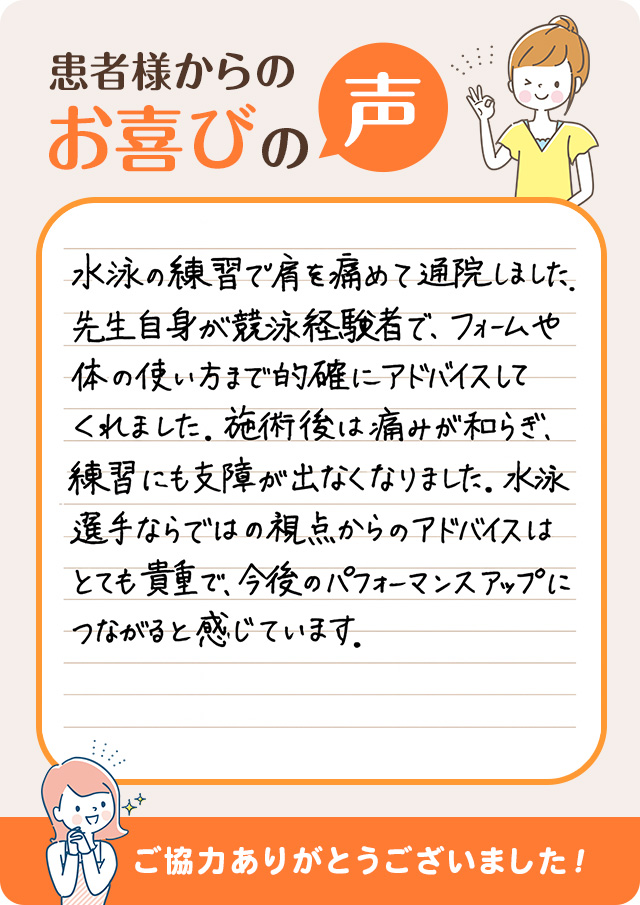 患者様からの
お喜びの声
水泳の練習で肩を痛めて通院しました.
先生自身が競泳経験者で、フォームや
体の使い方まで的確にアドバイスして
くれました. 施術後は痛みが和らぎ、
練習にも支障が出なくなりました. 水泳
選手ならではの視点からのアドバイスは
とても貴重で、今後のパフォーマンスアップに
つながると感じています.
ご協力ありがとうございました!